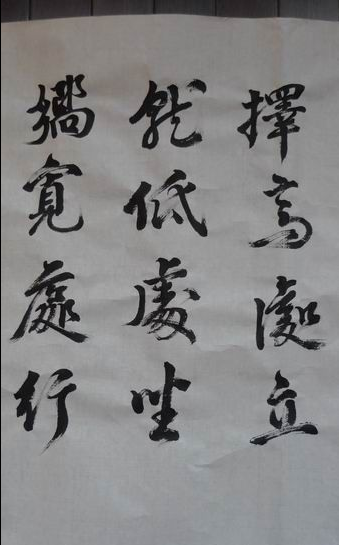 擇高處立
就低處坐
嚮寬處行